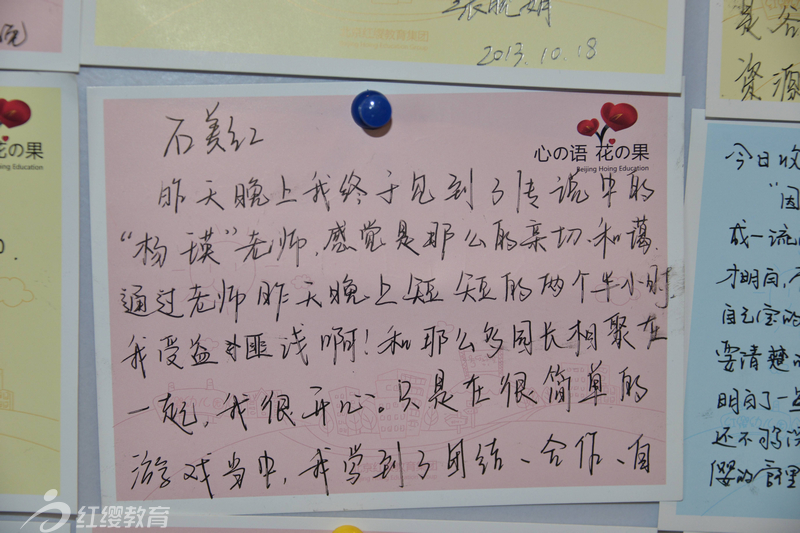 院
张晓娟
2013.10.18
是谷
资源
花の果
Hoing Education
石美红
心の语 花の果
Beijing Hoing Education
昨天晚上我终于见到了传说中的
“杨瑛”老师，感觉是那么的亲切、和蔼
通过老师昨天晚上短短的两个半小时，
我受益匪浅啊！和那么多园长相聚在
一起，我很开心。只是在很简单的
游戏当中，我学到了团结、合作、自
今日收
“因
成一流
才明白，不
自己宝的
要清楚
明白了一
还不够深
缨的管理
红缨教育